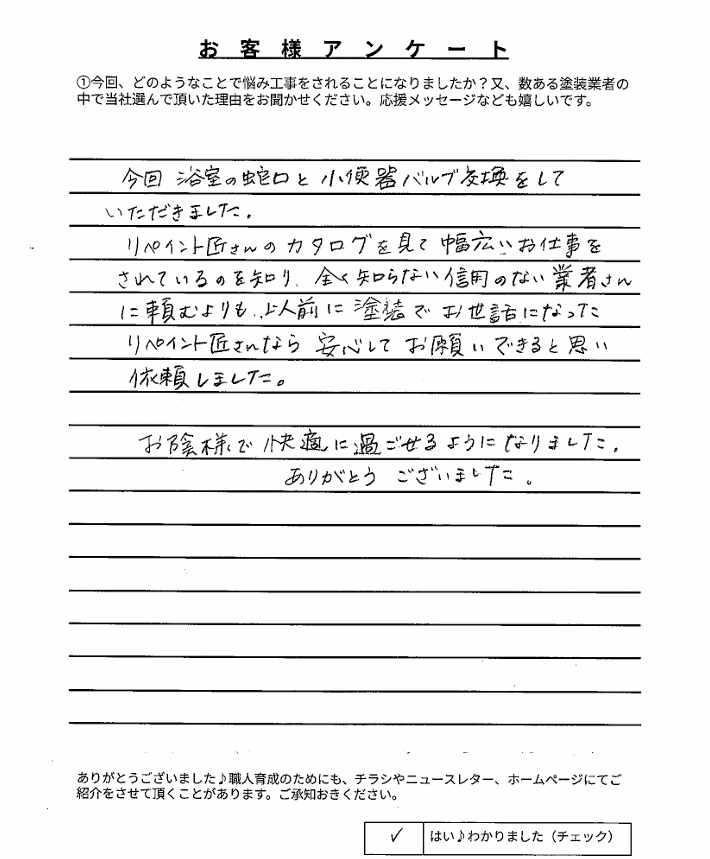 お客様アンケート
①今回、どのようなことで悩み工事をされることになりましたか？又、数ある塗装業者の
中で当社選んで頂いた理由をお聞かせください。応援メッセージなども嬉しいです。
今回 浴室の蛇口と小便器バルブ交換をして
いただきました。
リペイント匠さんのカタログを見て幅広いお仕事を
されているのを知り、全く知らない信用のない業者さん
に頼むよりも、以前に塗装でお世話になった
リペイント匠さんなら安心してお願いできると思い
依頼しました。
お陰様で快適に過ごせるようになりました。
ありがとうございました。
ありがとうございました♪職人育成のためにも、チラシやニュースレター、ホームページにてご
紹介をさせて頂くことがあります。ご承知おきください。
✓ はい♪わかりました（チェック）